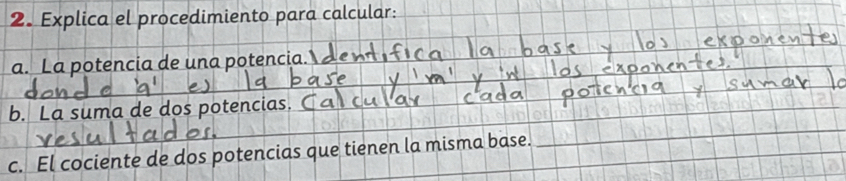 2. Explica el procedimiento para calcular:
a. La potencia de una potencia. Identifica la base y los exponentes
donde 'a' es la base y 'm' y 'n' los exponentes.
b. La suma de dos potencias. Calcular cada potencia y sumar lo
resultados.
c. El cociente de dos potencias que tienen la misma base.